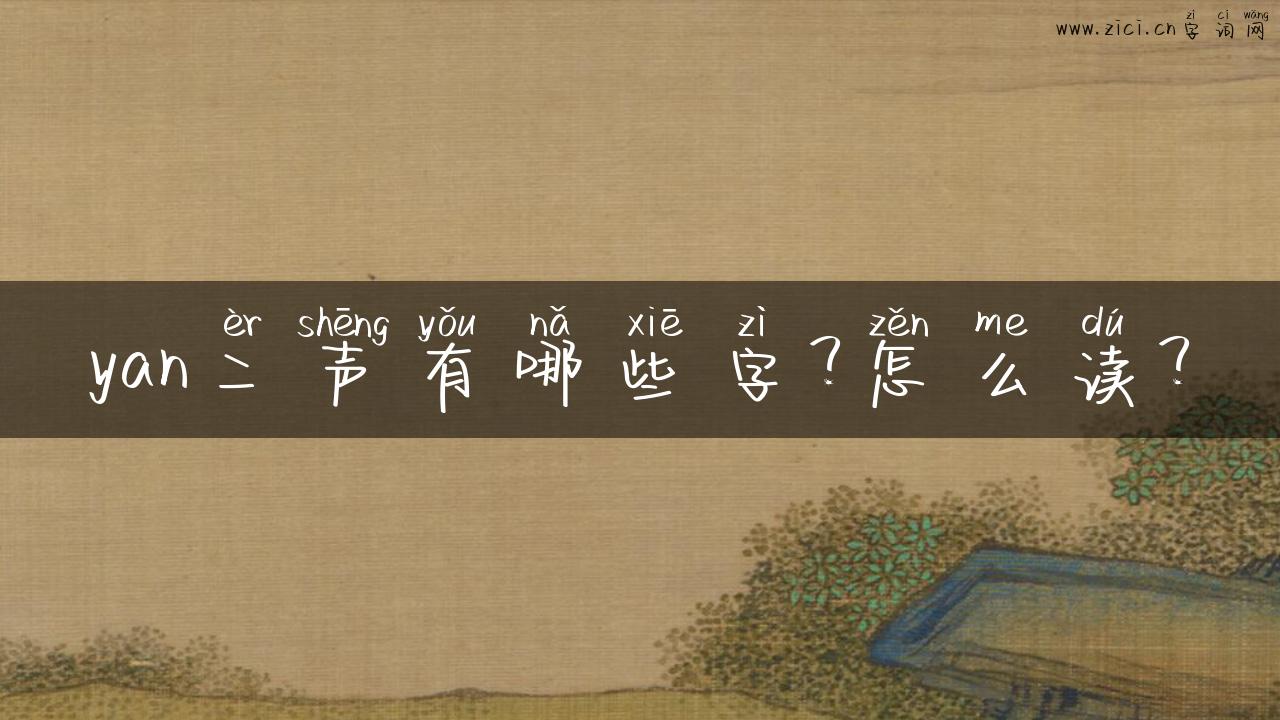 zì cí wǎng
www.zici.cn字词网
èr shēng yǒu nǎ xiē zì zěn me dú
yan二声有哪些字?怎么读?